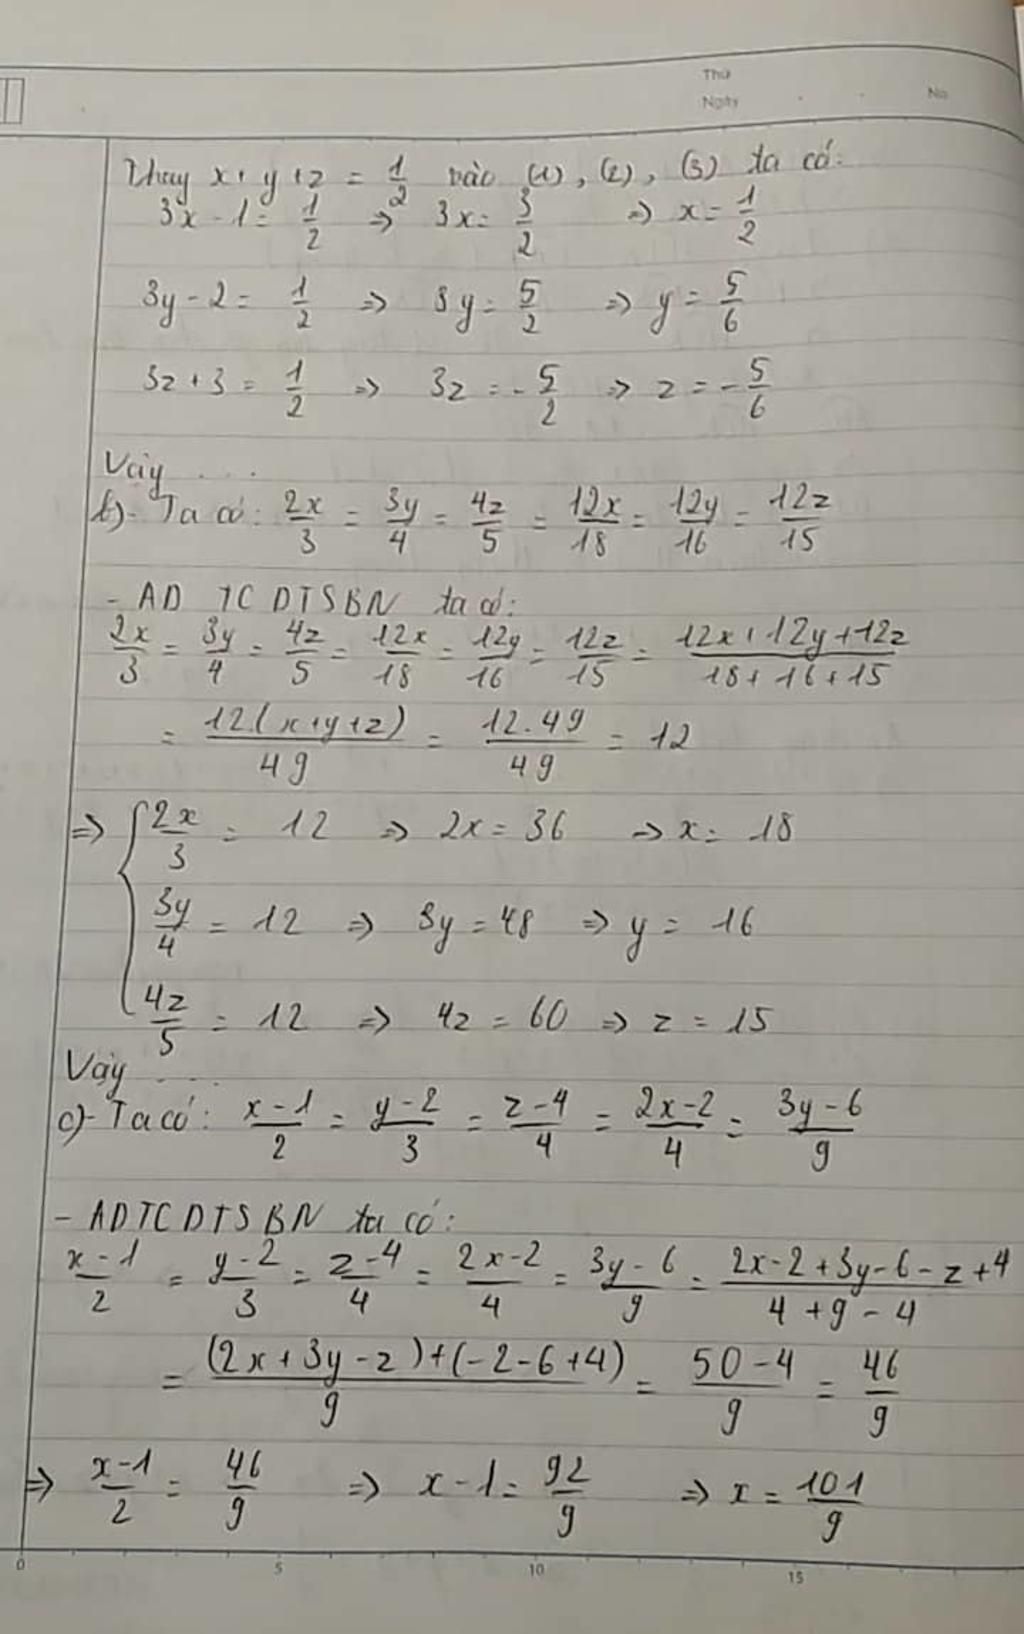 Thứ
Ngày . . No
Thay x + y + z = 1/2 vào (1), (2), (3) ta có:
3x - 1 = 1/2 => 3x = 3/2 => x = 1/2
3y - 2 = 1/2 => 3y = 5/2 => y = 5/6
3z + 3 = 1/2 => 3z = - 5/2 => z = - 5/6
Vậy ....
b)- Ta có: 2x/3 = 3y/4 = 4z/5 = 12x/18 = 12y/16 = 12z/15
- AD TC DTSBN ta có:
2x/3 = 3y/4 = 4z/5 = 12x/18 = 12y/16 = 12z/15 = (12x + 12y + 12z)/(18 + 16 + 15)
= 12.(x+y+z)/49 = 12.49/49 = 12
=> { 2x/3 = 12 => 2x = 36 => x = 18
3y/4 = 12 => 3y = 48 => y = 16
4z/5 = 12 => 4z = 60 => z = 15
Vậy ....
c)- Ta có: (x-1)/2 = (y-2)/3 = (z-4)/4 = (2x-2)/4 = (3y-6)/9
- ADTCDTSBN ta có:
(x-1)/2 = (y-2)/3 = (z-4)/4 = (2x-2)/4 = (3y-6)/9 = (2x-2+3y-6-z+4)/(4+9-4)
= ((2x+3y-z)+(-2-6+4))/9 = (50-4)/9 = 46/9
=> (x-1)/2 = 46/9 => x-1 = 92/9 => x = 101/9
0 5 10 15